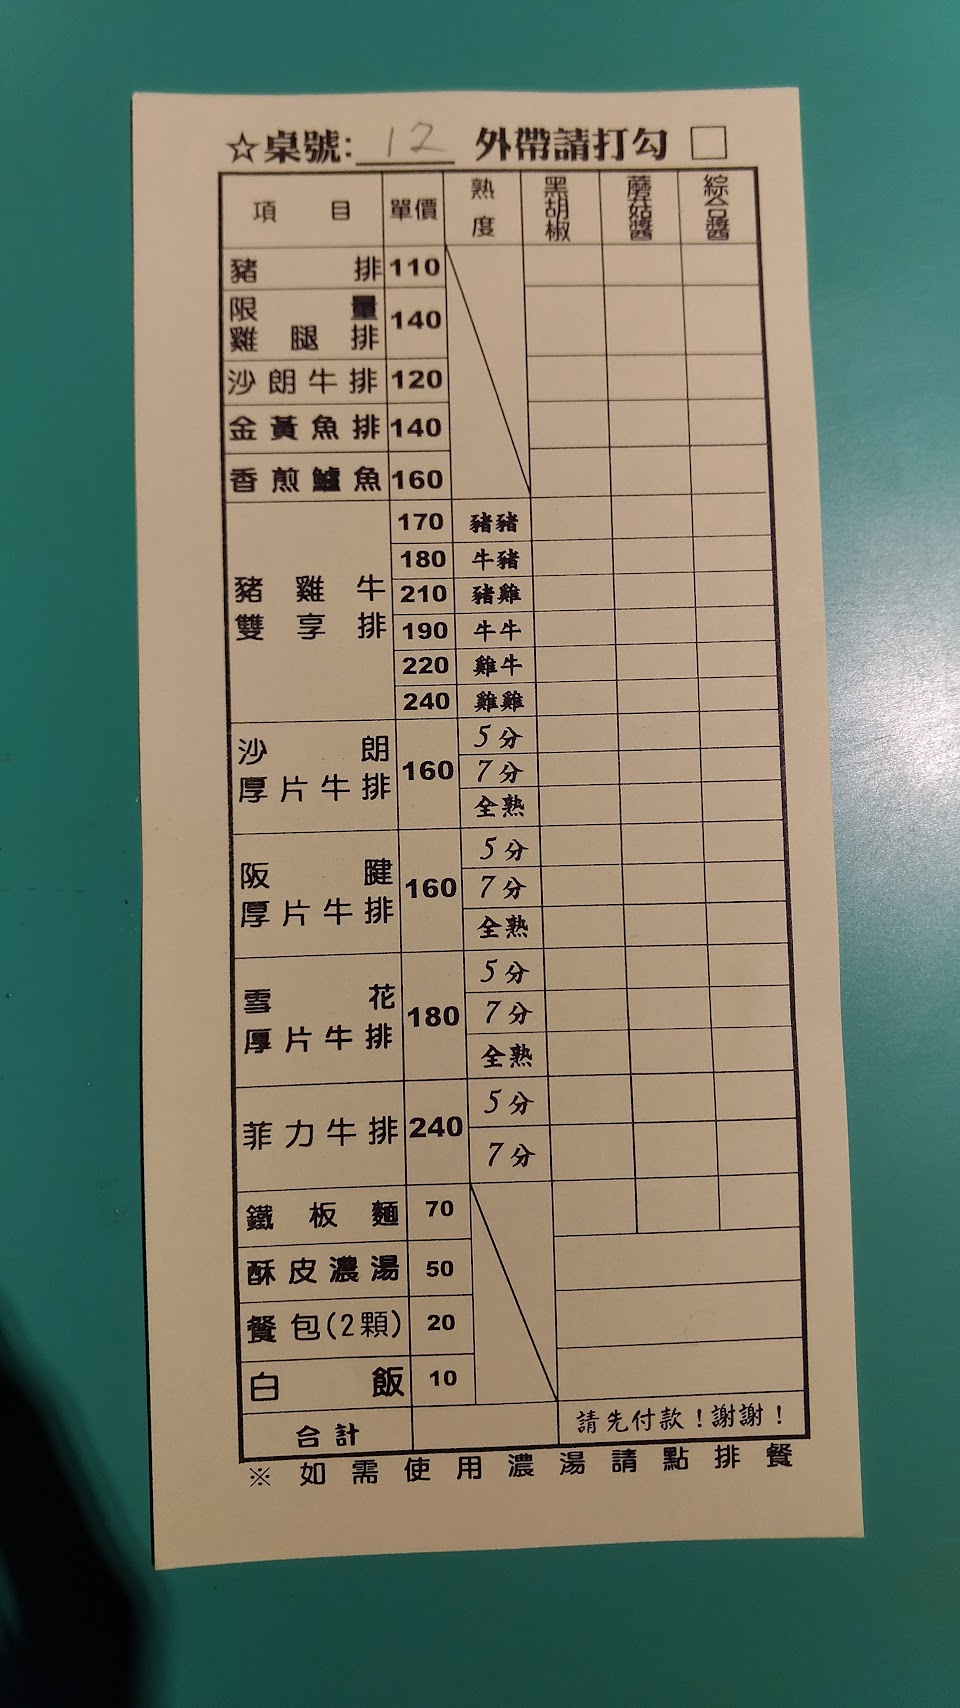 ☆桌號: 12 外帶請打勾 □
項目 單價 熟度 黑胡椒 蘑菇醬 綜合醬
豬排 110
限量
雞腿排 140
沙朗牛排 120
金黃魚排 140
香煎鱸魚 160
豬雞牛
雙享排
170 豬豬
180 牛豬
210 豬雞
190 牛牛
220 雞牛
240 雞雞
沙朗
厚片牛排 160
5分
7分
全熟
阪腱
厚片牛排 160
5分
7分
全熟
雪花
厚片牛排 180
5分
7分
全熟
菲力牛排 240
5分
7分
鐵板麵 70
酥皮濃湯 50
餐包(2顆) 20
白飯 10
合計 請先付款！謝謝！
※如需使用濃湯請點排餐